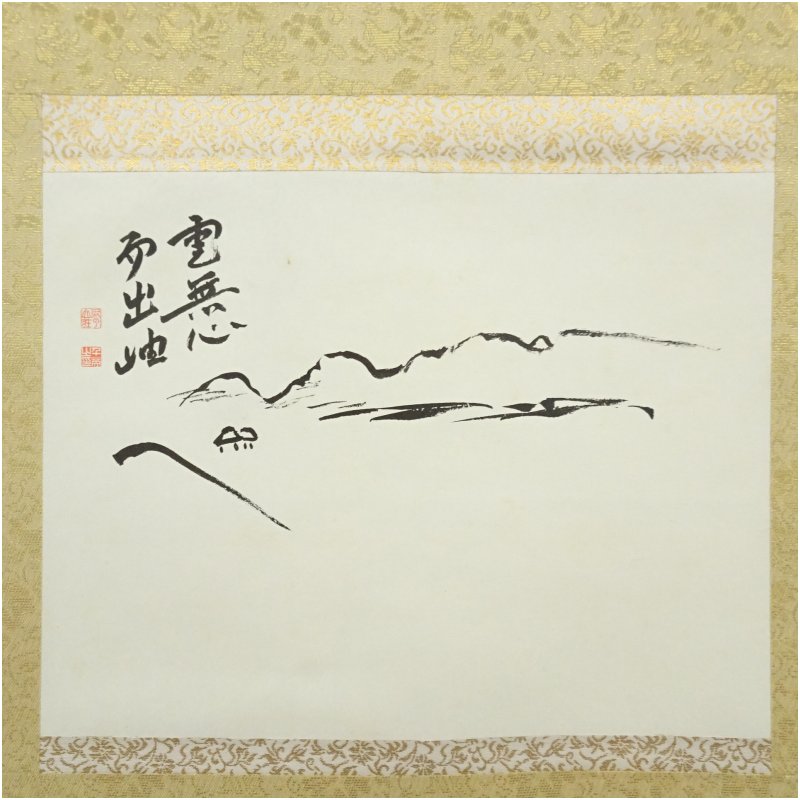 雲無心
而出岫